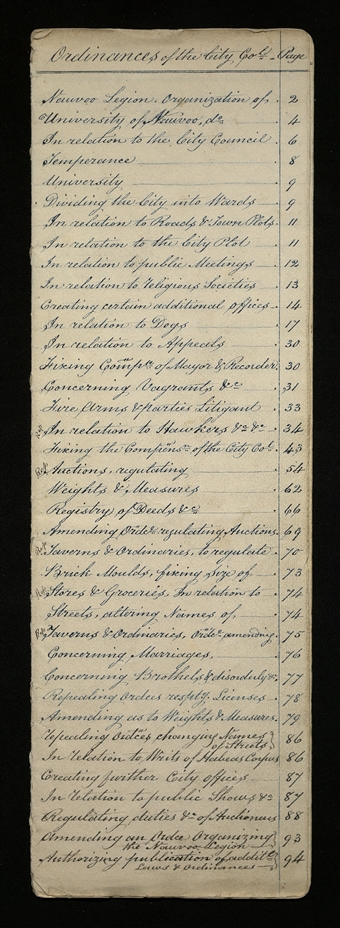 Ordinances of the City Col. Page
Nauvoo Legion. Organization of, 2
University of Nauvoo, do 4
In relation to the City Council 6
Temperance 8
University 9
Dividing the City into Wards 9
In relation to Roads & Town Plots 11
In relation to the City Plot 11
In relation to public Meetings 12
In relation to religious Societies 13
Creating certain additional offices 14
In relation to Dogs 17
In relation to Appeals 30
Fixing of Mayor & Recorder 30
Concerning Vagrants &c 31
Fire, Arms & parties Litigant 33
In relation to Hawkers &c &c 34
Fixing the of the City Col. 43
Auctions, regulating 54
Weights & Measures 62
Registry of Deeds &c 66
Amending Ordce regulating Auctions 69
Taverns & Ordinaries, to regulate 70
Brick Moulds, fixing size of 73
Stores & Groceries, In relation to 74
Streets, altering Names of, 74
Taverns & Ordinaries, Ordce amending 75
Concerning Marriages, 76
Concerning Brothels & disorderly &c 77
Repealing Ordces respg. Licenses 78
Amending as to Weights & Measures 79
Repealing Ordces changing Names
of Streets 86
In relation to Writs of Habeas Corpus 86
Creating further City offices 87
In relation to public Shows &c 87
Regulating duties &c of Auctioneers 88
Amending an Ordce Organizing
the Nauvoo Legion 93
Authorizing publication of addit.
Laws & Ordinances 94